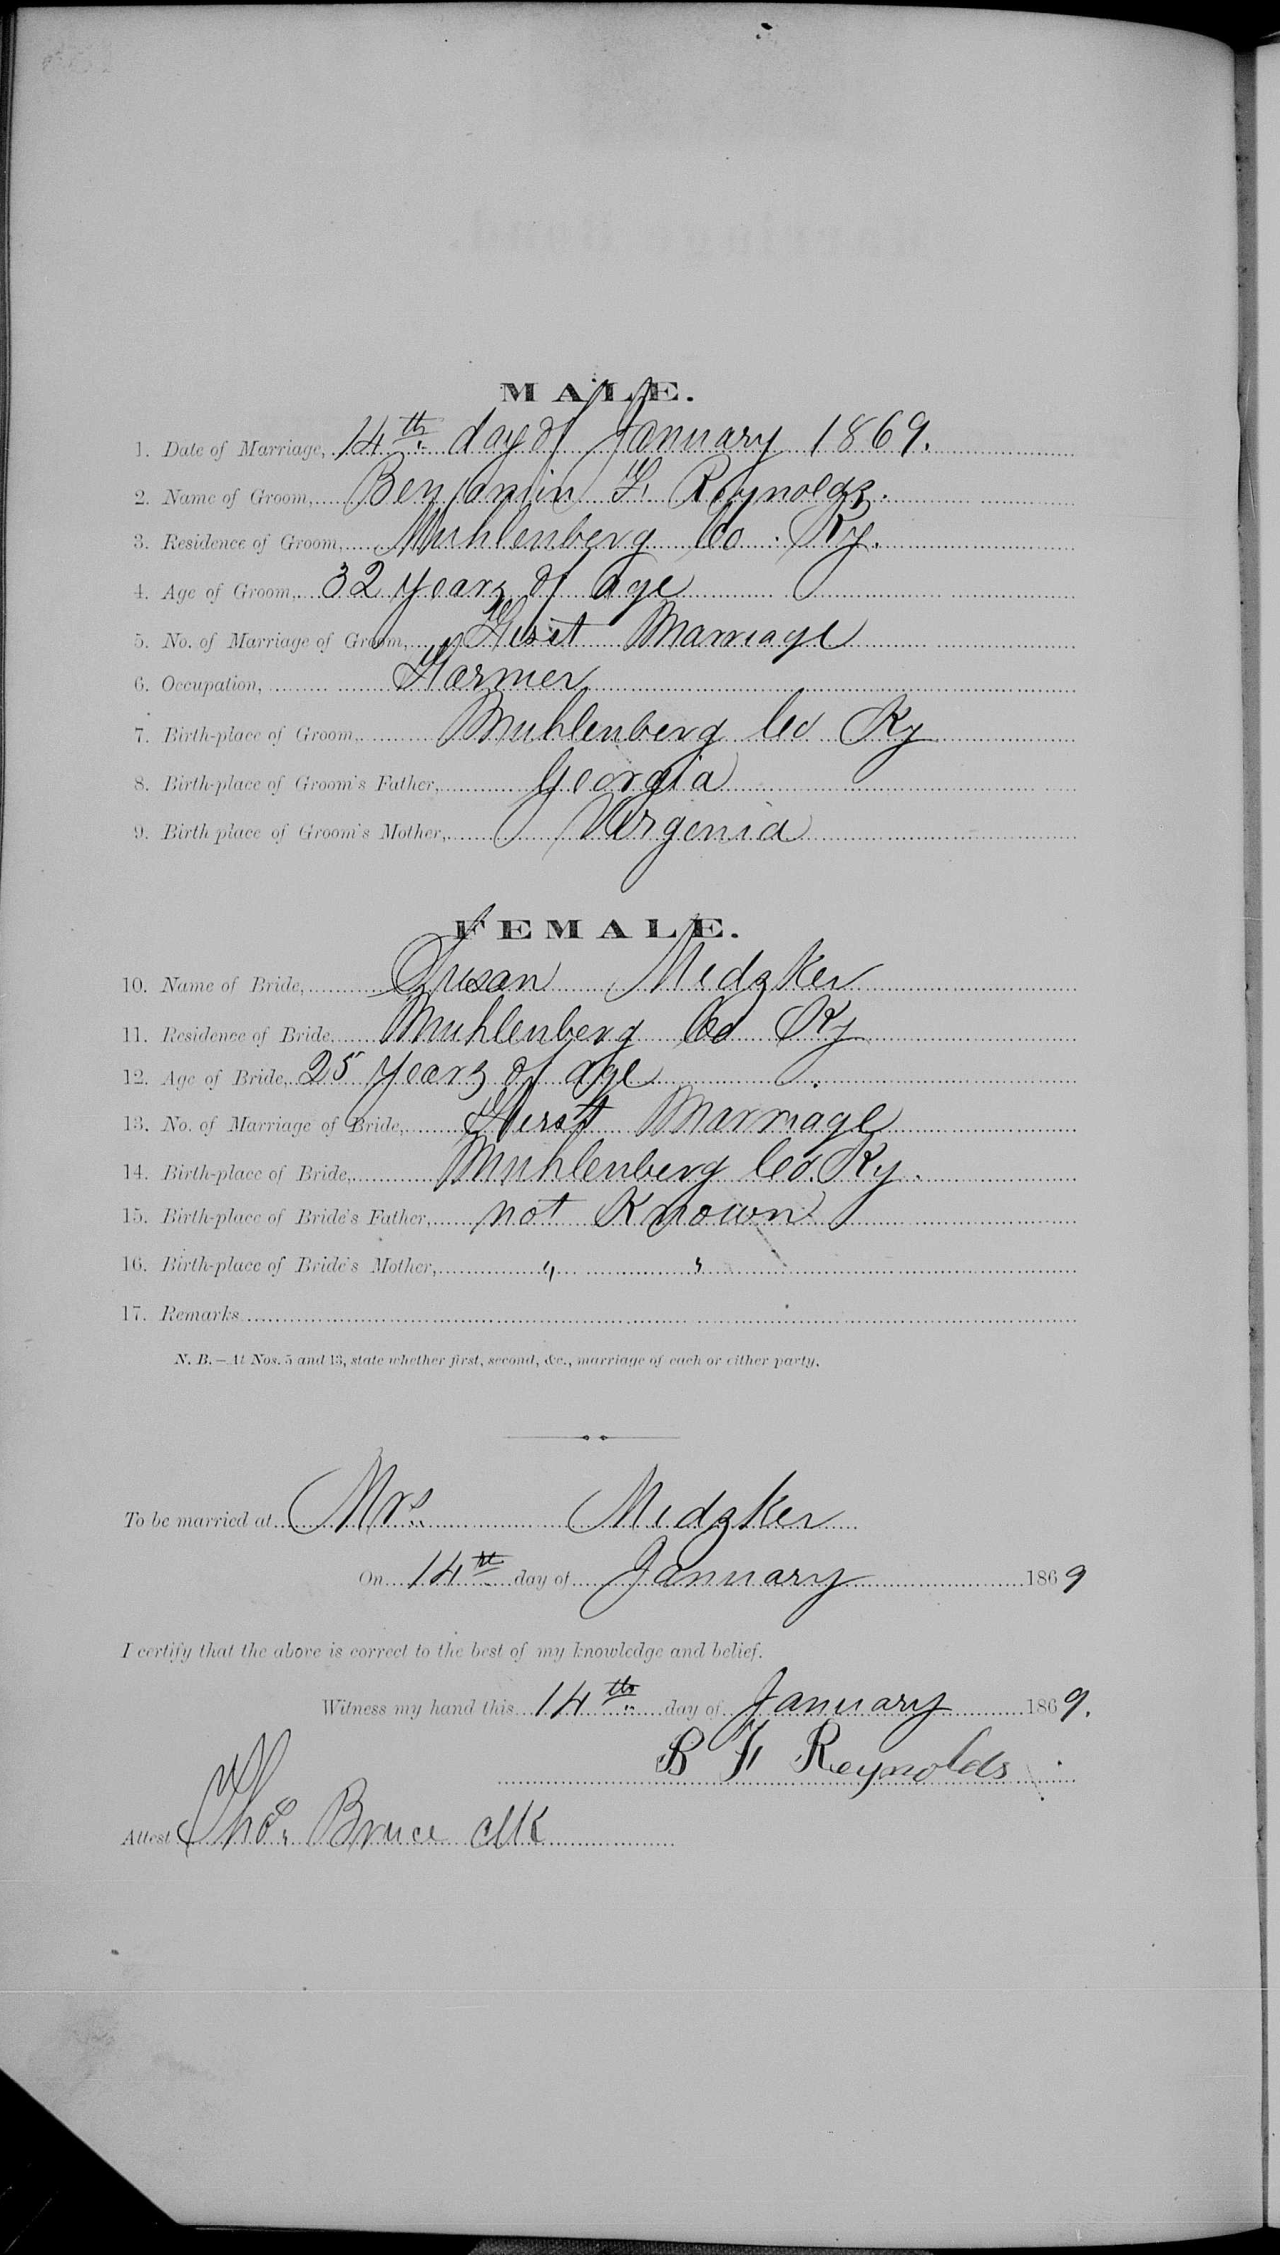 MALE.
1. Date of Marriage, 14th day of January 1869.
2. Name of Groom, Benjamin F. Reynolds.
3. Residence of Groom, Muhlenberg Co. Ky.
4. Age of Groom, 32 years of age
5. No. of Marriage of Groom, First Marriage
6. Occupation, Farmer
7. Birth-place of Groom, Muhlenberg Co Ky
8. Birth-place of Groom's Father, Georgia
9. Birth-place of Groom's Mother, Virginia
FEMALE.
10. Name of Bride, Susan Medzker
11. Residence of Bride, Muhlenberg Co Ky
12. Age of Bride, 25 years of age
13. No. of Marriage of Bride, First Marriage
14. Birth-place of Bride, Muhlenberg Co. Ky.
15. Birth-place of Bride's Father, not Known
16. Birth-place of Bride's Mother, " "
17. Remarks
N. B.—At Nos. 5 and 13, state whether first, second, &c., marriage of each or either party.
To be married at Mrs. Medzker
On 14th day of January 1869
I certify that the above is correct to the best of my knowledge and belief.
Witness my hand this 14th day of January 1869.
B F Reynolds
Attest Thos. Bruce clk